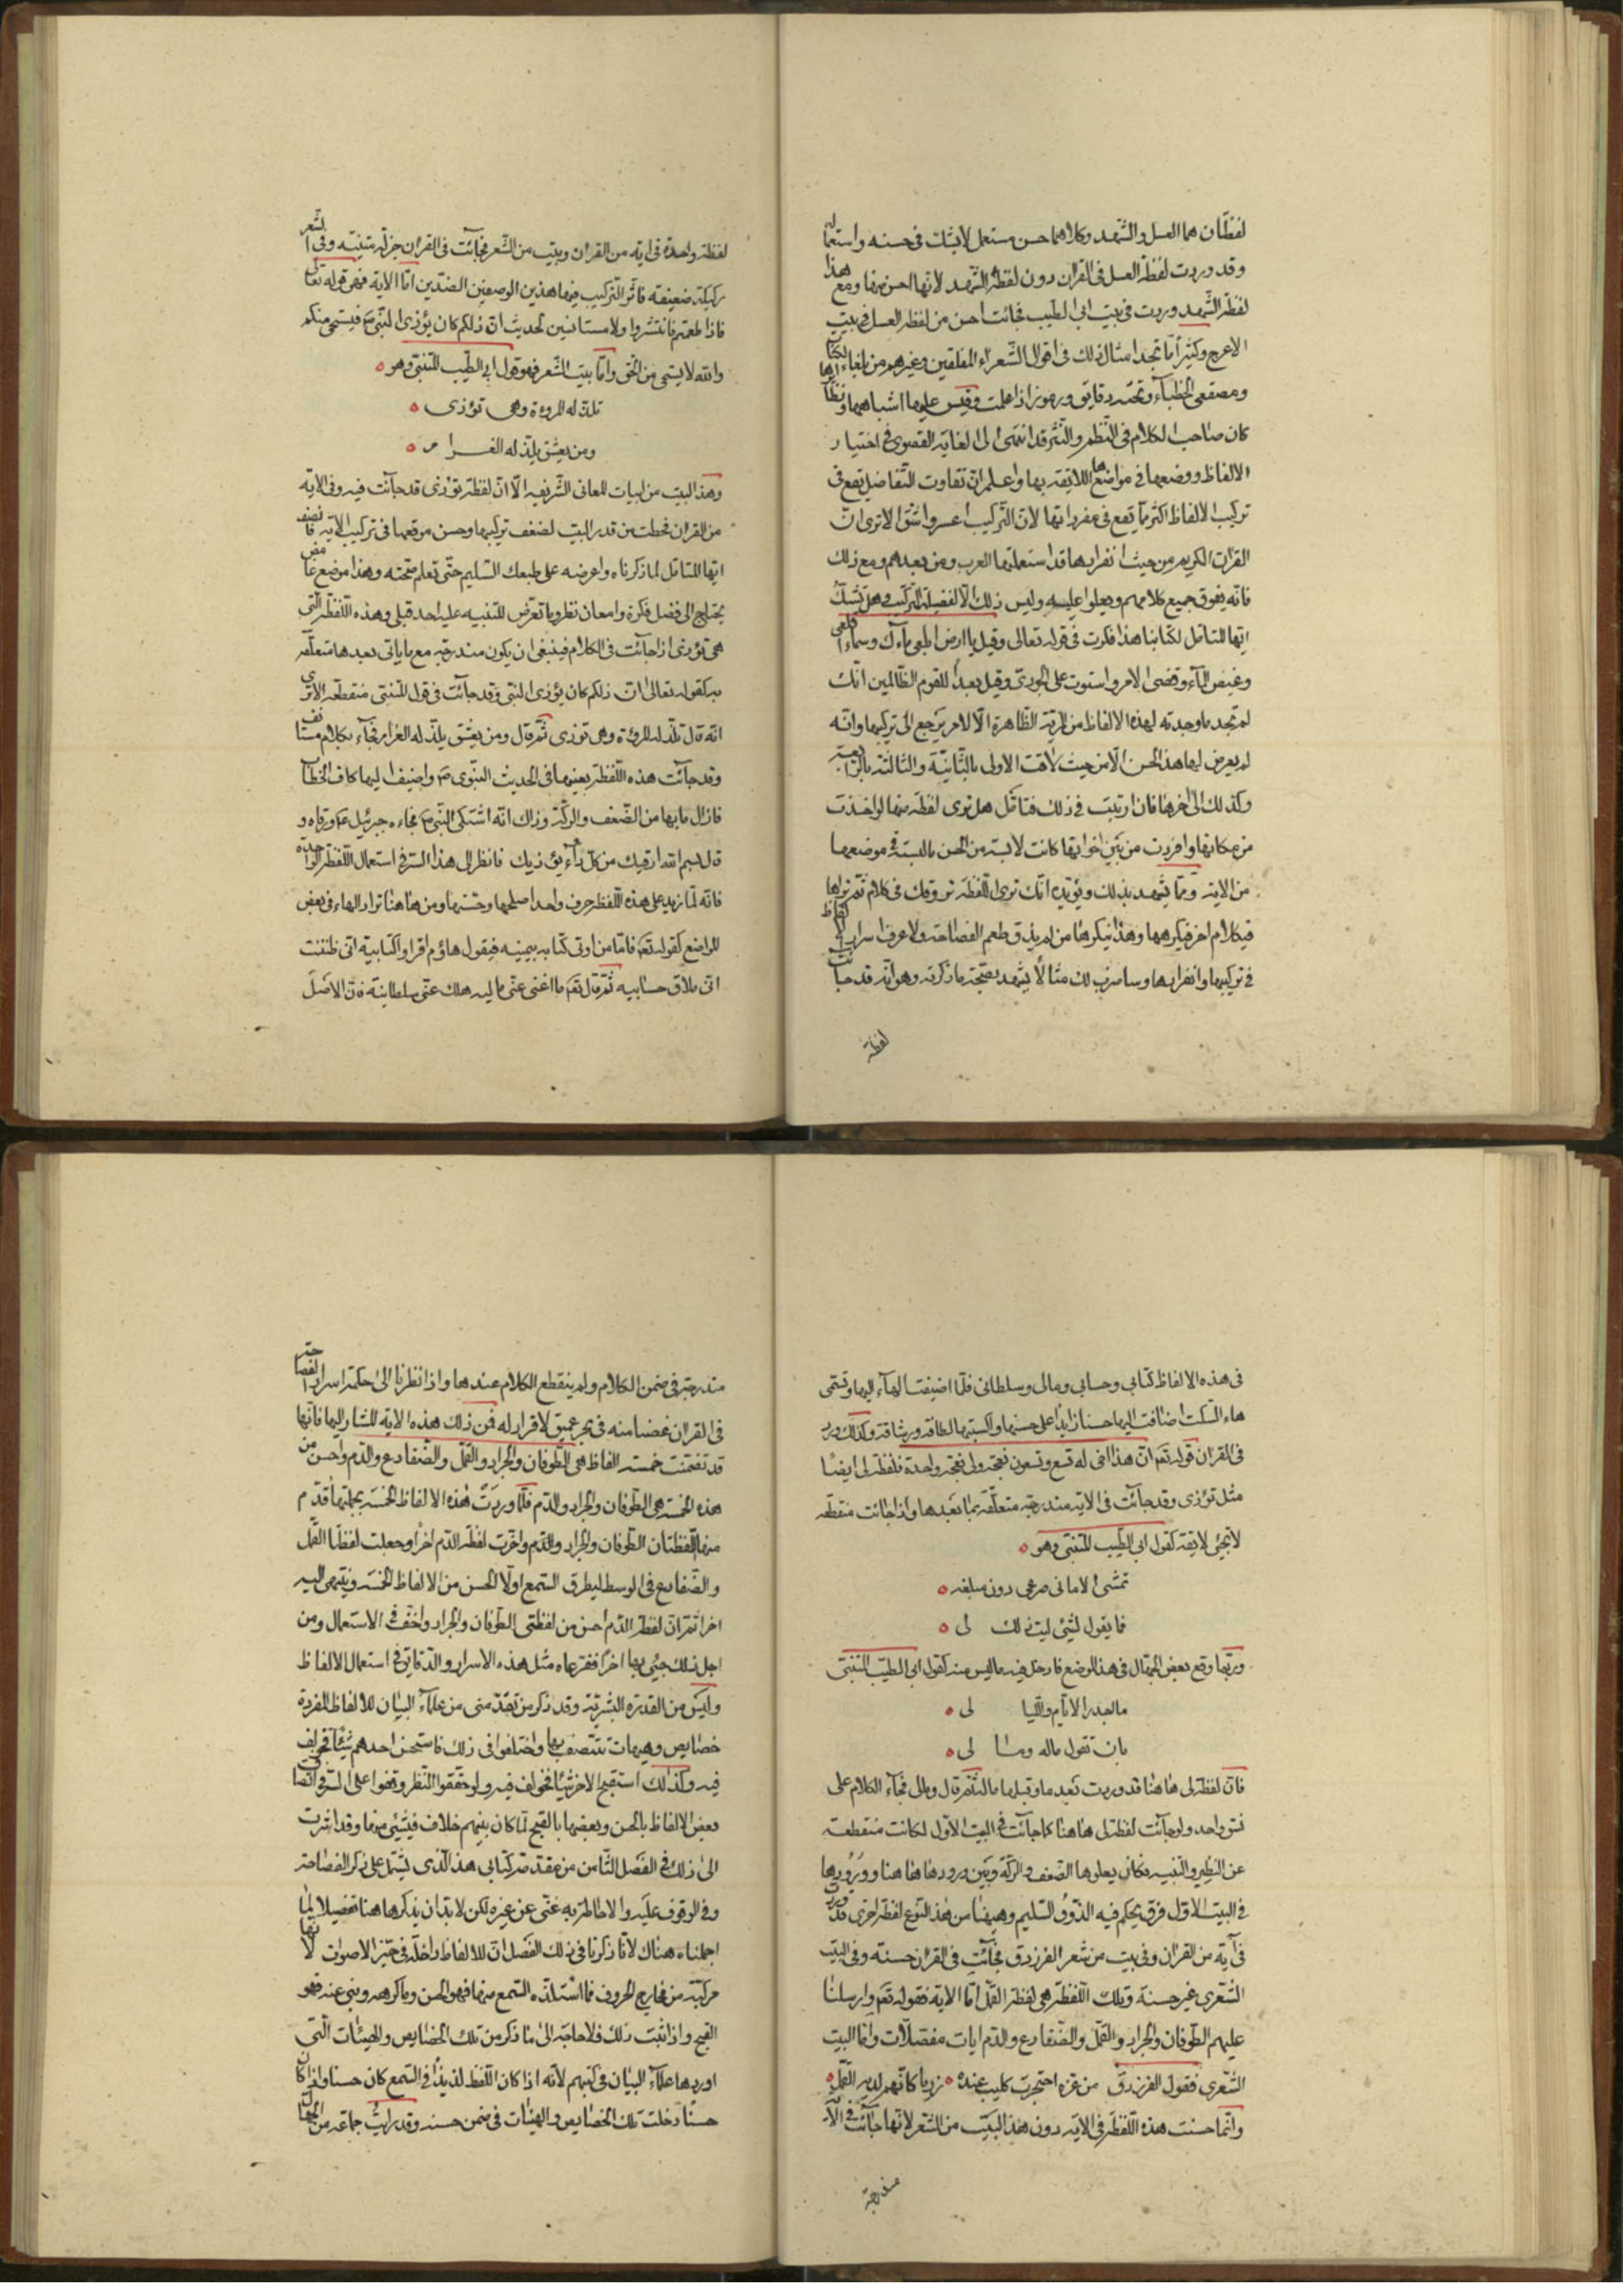 لفظتان هما العسل والشّهد وكلاهما حسن مستعمل لايشك فى حسنه واستعماله
وقد وردت لفظة العسل فى القران دون لفظة الشّهد لانّها احسن منها ومع هذا
لفظة الشّهد وردت فى بيت ابى الطيب فجائت احسن من لفظة العسل فى بيت
الاعرج وكثيرًا ما تجد امثال ذلك فى اقوال الشّعراء المفلقين وغيرهم من بلغاء الكتّاب
ومصقعى الخطبآء وتحته دقايق ورموز اذا علمت وقيس عليها اشباهها ونظايرها
كان صاحب الكلام فى النّظم والنّثر قد انتهى الى الغاية القصوى فى اختيار
الالفاظ ووضعها فى مواضعها اللايقة بها واعلم انّ تفاوت التّفاضل يقع فى
تركيب الالفاظ اكثر ممّا يقع فى مفرداتها لانّ التّركيب اعسر واشقّ الا ترى انّ
القرآن الكريم من حيث انفرادها قد استعملتها العرب ومن بعدهم ومع ذلك
فانّه يفوق جميع كلامهم ويعلوا عليه وليس ذلك الّا لفضيلة التّركيب وهل تشكّ
ايّها المتامّل لكتابنا هذا فكرت فى قوله تعالى وقيل ياارض ابلعى ماءك وسماء اقلعى
وغيض المآء وقضى الامر واستوت على الجودىّ وقيل بعدًا للقوم الظّالمين انّك
لم تجد ما وجدته لهذه الالفاظ من المزيّة الظّاهرة الّا لامر يرجع الى تركيبها وانّه
لم يعرض لها هذا الحسن الّا من حيث لاقت الاولى بالثّانية والثالثة بالرّابعة
وكذلك الى اخرها فان ارتبت فى ذلك فتامّل هل ترى لفظة منها لو اخذت
من مكانها وافردت من بين اخواتها كانت لابسة من الحسن مالبسته فى موضعها
من الاية وممّا يشهد بذلك ويؤيّده انّك ترى اللّفظة تروقك فى كلام ثمّ تراها
فى كلام اخر فيكرهها وهذا ينكره من لم يذق طعم الفصاحة ولا عرف اسرار الالفاظ
فى تركيبها وانفرادها وساضرب لك مثالًا يشهد بصحّة ماذكرته وهو انّه قد جائت
لفظة
لفظة واحدة فى اية من القران وبيت من الشّعر فجائت فى القران جزلة متينة وفى الشّعر
ركيكة ضعيفة فاثّر التّركيب فيها هذين الوصفين الضدّين امّا الاية فهى قوله تعالى
فاذا طعمتم فانتشروا ولا مستانسين لحديث انّ ذلكم كان يؤذى النّبىّ فيستحى منكم
والله لا يستحى من الحقّ وامّا بيت الشّعر فهو قول ابى الطّيب المتنبّى وهو
تلذّ له المروءة وهى تؤذى
ومن يعشق يلذّ له الغرام
وهذا البيت من ابيات المعانى الشّريفة الّا انّ لفظة تؤذى قد جآئت فيه وفى الاية
من القران فحطّت من قدر البيت لضعف تركيبها وحسن موقعها فى تركيب الاية فانصف
ايّها المتامّل لما ذكرناه واعرضه على طبعك السّليم حتّى تعلم صحّته وهذا موضع غامض
يحتاج الى فضل فكرة وامعان نظر وما تعرّض للتنبيه عليه احد قبلى وهذه اللّفظة الّتى
هى تؤذى اذا جآئت فى الكلام فينبغى ان يكون مندرجة مع ما ياتى بعدها متعلّقة
به كقوله تعالى انّ ذلكم كان يؤذى النّبى وقد جآئت فى قول المتنبّى منقطعة الا ترى
انّه قال تلذّ له المروءة وهى تؤذى ثمّ قال ومن يعشق يلذّ له الغرام فجآء بكلام مستانف
وقد جآئت هذه اللّفظة بعينها فى الحديث النّبوى وأضيف اليها كاف الخطاب
فازال ما بها من الضّعف والركّة وذاك انّه اشتكى النّبى فجاءه جبرئيل ورقاه و
قال بسم الله ارقيك من كلّ دآء يؤذيك فانظر الى هذا السّر فى استعمال اللّفظة الواحدة
فانّه لمّا زيد على هذه اللّفظة حرف واحد اصلحها وحسّنها ومن هاهنا تزاد الهاء فى بعض
المواضع كقوله تع فامّا من اوتى كتابه بيمينه فيقول هاؤم اقراوا كتابيه انّى ظننت
انّى ملاق حسابيه ثمّ قال تع ما اغنى عنّى ماليه هلك عنّى سلطانيه فانّ الاصل
فى هذه الالفاظ كتابى وحسابى ومالى وسلطانى فلمّا اضيفت الهآء اليها وتسمّى
هاء السّكت اضافت اليها حسنًا زايدًا على حسنها واكسبتها لطافة ورشاقة وكذلك ورد
فى القران قوله تع انّ هذا اخى له تسع وتسعون نعجة ولى نعجة واحدة فلفظة لى ايضًا
مثل تؤذى وقد جآئت فى الاية مندرجة متعلّقة بما بعدها واذا جائت منقطعة
لا تجيئ لايقة كقول ابى الطّيب المتنبّى وهو
تمسّى الامانى صرعى دون مبلغه
فما يقول لشيئ ليت ذلك لى
وربّما وقع بعض الجهّال فى هذا الموضع فادخل فيه ماليس منه كقول ابى الطّيب المتنبّى
ما اجدر الايّام والليالى
بان تقول ماله ومالى
فانّ لفظة لى هاهنا قد وردت بعد ما وقبلها ماله ثمّ قال ومالى فجآء الكلام على
نسق واحد ولو جآئت لفظة لى هاهنا كما جآئت فى البيت الاوّل لكانت منقطعة
عن النّظير والشّبيه فكان يعلوها الضّعف والركّة وبين ورودها هاهنا وورودها
فى البيت الاوّل فرق يحكم فيه الذّوق السّليم وهيهنا من هذا النّوع لفظة اخرى قد وردت
فى آية من القران وفى بيت من شعر الفرزدق فجآئت فى القران حسنة وفى البيت
الشّعرى غير حسنة وتلك اللّفظة هى لفظة القمّل امّا الاية فقوله تع وارسلنا
عليهم الطّوفان والجراد والقمّل والضّفادع والدّم ايات مفصّلات وامّا البيت
الشّعرى فقول الفرزدق من عزّه احتجرت كليب عنده زربا كانّهم لديه القمّل
وانّما حسنت هذه اللّفظة فى الاية دون هذا البيت من الشّعر لانّها جآئت فى الاية
مندرجة
مندرجة فى ضمن الكلام ولم ينقطع الكلام عندها واذا نظرنا الى حكمة اسرار الفصاحة
فى القران غصنا منه فى بحر عميق لا قرار له فمن ذلك هذه الاية المشار اليها فانّها
قد تضمّنت خمسة الفاظ هى الطّوفان والجراد والقمّل والضّفادع والدّم واحسن من
هذه الخمسة هى الطّوفان والجراد والدّم فلمّا وردت هذه الالفاظ الخمسة بجملتها قدّم
منها اللّفظتان الطّوفان والجراد والدّم واخّرت لفظة الدّم اخرًا وجعلت لفظتا القمّل
والضّفادع فى الوسط ليطرق السّمع اوّلًا الحسن من الالفاظ الخمسة وينتهى اليه
اخرا ثمّ انّ لفظة الدّم احسن من لفظتى الطّوفان والجراد واخفّ فى الاستعمال ومن
اجل ذلك جيئ بها اخرًا ففقرعاه مثل هذه الاسرار والدّقايق فى استعمال الالفاظ
وليس من القدرة البشريّة وقد ذكر من تقدّمنى من علمآء البيان للالفاظ المفردة
خصايص وهيهات تتّصف بها واختلفوا فى ذلك فاستحسن احدهم شيئًا فخولف
فيه وكذلك استقبح الاخر شيئًا فخولف فيه ولو حقّقوا النّظر ووقفوا على السّر فى اتّصاف
بعض الالفاظ بالحسن وبعضها بالقبح لما كان بينهم خلاف فى شيئ منها وقد اشرت
الى ذلك فى الفصل الثّامن من مقدّمة كتابى هذا الّذى يشتمل على ذكر الفصاحة
وفى الوقوف عليه والاحاطة به غنى عن غيره لكن لا بدّ ان يذكرها هنا تفصيلا لما
اجملناه هناك لانّا ذكرنا فى ذلك الفصل انّ الالفاظ داخلة فى حيّز الاصوات لانّها
مركّبة من مخارج الحروف فما استلذّه السّمع منها فهو الحسن وما كرهه ونبى عنه فهو
القبيح واذا ثبت ذلك فلا حاجة الى ما ذكر من تلك الخصايص والهيئات الّتى
اوردها علمآء البيان فى كتبهم لانّه اذا كان اللّفظ لذيذًا فى السّمع كان حسنا واذا كان
حسنًا دخلت تلك الخصايص والهيئات فى ضمن حسنه وقد رايت جماعة من الجهّال